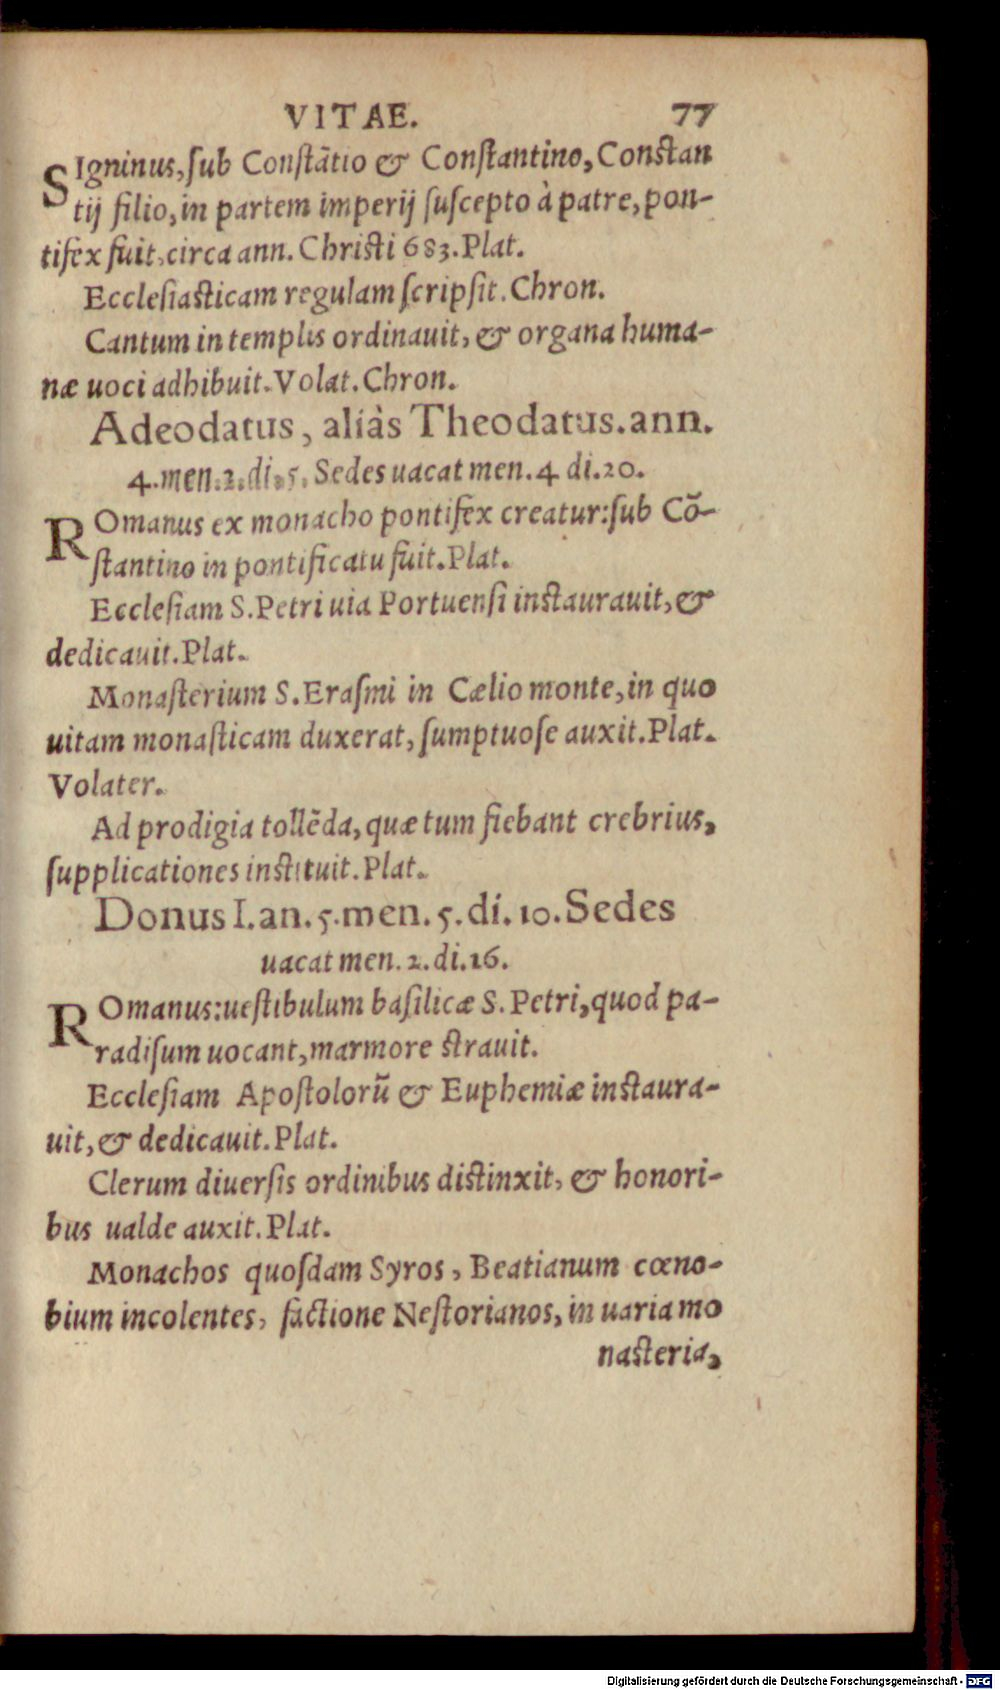 VITAE. 77
SIgninus, ſub Conſtãtio & Conſtantino, Conſtan
tij filio, in partem imperij ſuſcepto à patre, pon-
tifex fuit, circa ann. Chriſti 683. Plat.
Eccleſiaſticam regulam ſcripſit. Chron.
Cantum in templis ordinauit, & organa huma-
næ uoci adhibuit. Volat. Chron.
Adeodatus, aliàs Theodatus. ann.
4. men. 2. di. 5. Sedes uacat men. 4 di. 20.
ROmanus ex monacho pontifex creatur: ſub Cõ-
ſtantino in pontificatu fuit. Plat.
Eccleſiam S. Petri uia Portuenſi inſtaurauit, &
dedicauit. Plat.
Monaſterium S. Eraſmi in Cælio monte, in quo
uitam monaſticam duxerat, ſumptuoſe auxit. Plat.
Volater.
Ad prodigia tollẽda, quæ tum fiebant crebrius,
ſupplicationes inſtituit. Plat.
Donus I. an. 5. men. 5. di. 10. Sedes
uacat men. 2. di. 16.
ROmanus: ueſtibulum baſilicæ S. Petri, quod pa-
radiſum uocant, marmore ſtrauit.
Eccleſiam Apoſtolorũ & Euphemiæ inſtaura-
uit, & dedicauit. Plat.
Clerum diuerſis ordinibus diſtinxit, & honori-
bus ualde auxit. Plat.
Monachos quoſdam Syros, Beatianum cœno-
bium incolentes, factione Neſtorianos, in uaria mo
naſteria,
Digitalisierung gefördert durch die Deutsche Forschungsgemeinschaft - DFG